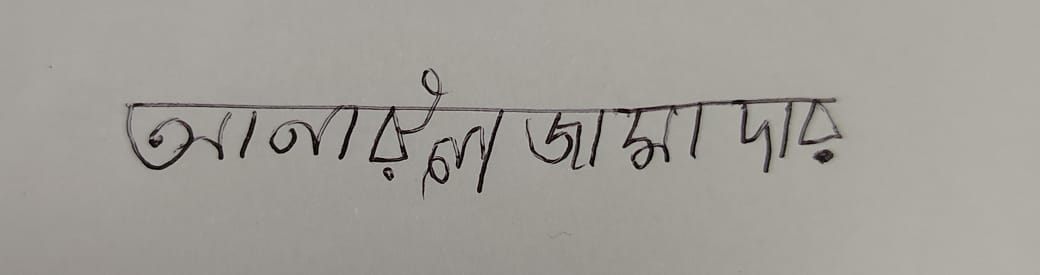 আনারুল জামাদার